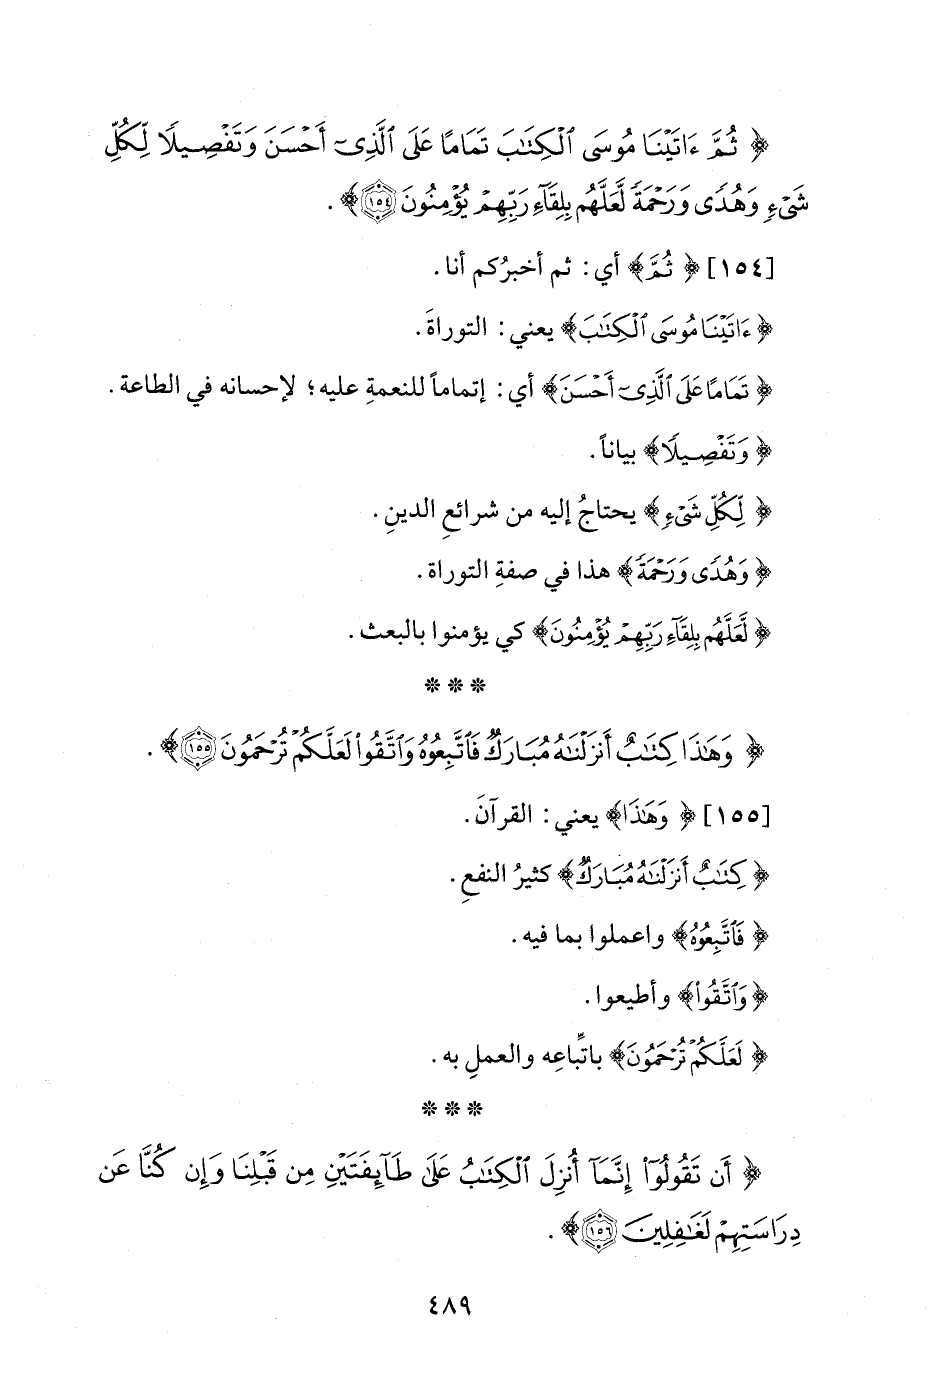 ﴿ ثُمَّ ءَاتَيْنَا مُوسَى ٱلْكِتَٰبَ تَمَامًا عَلَى ٱلَّذِىٓ أَحْسَنَ وَتَفْصِيلًا لِّكُلِّ
شَىْءٍ وَهُدًى وَرَحْمَةً لَّعَلَّهُم بِلِقَآءِ رَبِّهِمْ يُؤْمِنُونَ ١٥٤ ﴾ .
[١٥٤] ﴿ ثُمَّ ﴾ أي: ثم أخبرُكم أنا.
﴿ ءَاتَيْنَا مُوسَى ٱلْكِتَٰبَ ﴾ يعني: التوراةَ.
﴿ تَمَامًا عَلَى ٱلَّذِىٓ أَحْسَنَ ﴾ أي: إتماماً للنعمةِ عليه؛ لإحسانه في الطاعة.
﴿ وَتَفْصِيلًا ﴾ بياناً.
﴿ لِّكُلِّ شَىْءٍ ﴾ يحتاجُ إليه من شرائعِ الدينِ.
﴿ وَهُدًى وَرَحْمَةً ﴾ هذا في صفةِ التوراة.
﴿ لَّعَلَّهُم بِلِقَآءِ رَبِّهِمْ يُؤْمِنُونَ ﴾ كي يؤمنوا بالبعث.
* * *
﴿ وَهَٰذَا كِتَٰبٌ أَنزَلْنَٰهُ مُبَارَكٌ فَٱتَّبِعُوهُ وَٱتَّقُوا۟ لَعَلَّكُمْ تُرْحَمُونَ ١٥٥ ﴾ .
[١٥٥] ﴿ وَهَٰذَا ﴾ يعني: القرآنَ.
﴿ كِتَٰبٌ أَنزَلْنَٰهُ مُبَارَكٌ ﴾ كثيرُ النفعِ.
﴿ فَٱتَّبِعُوهُ ﴾ واعملوا بما فيه.
﴿ وَٱتَّقُوا۟ ﴾ وأطيعوا.
﴿ لَعَلَّكُمْ تُرْحَمُونَ ﴾ باتِّباعِه والعملِ به.
* * *
﴿ أَن تَقُولُوٓا۟ إِنَّمَآ أُنزِلَ ٱلْكِتَٰبُ عَلَىٰ طَآئِفَتَيْنِ مِن قَبْلِنَا وَإِن كُنَّا عَن
دِرَاسَتِهِمْ لَغَٰفِلِينَ ١٥٦ ﴾ .
٤٨٩